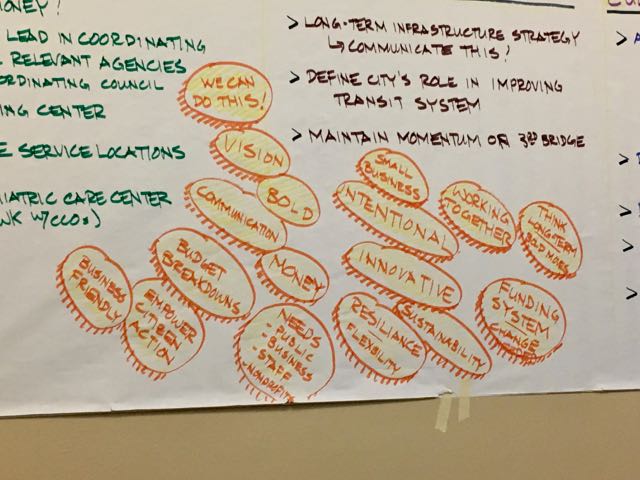 MONEY!
LEAD IN COORDINATING
RELEVANT AGENCIES
COORDINATING COUNCIL
CENTER
SERVICE LOCATIONS
CARE CENTER
> LONG-TERM INFRASTRUCTURE STRATEGY
↳ COMMUNICATE THIS!
> DEFINE CITY'S ROLE IN IMPROVING
TRANSIT SYSTEM
> MAINTAIN MOMENTUM ON 3RD BRIDGE
WE CAN
DO THIS!
VISION
BOLD
COMMUNICATION
SMALL
BUSINESS
INTENTIONAL
WORKING
TOGETHER
THINK
LONG-TERM
BOLD MOVES
BUDGET
BREAKDOWNS
MONEY
INNOVATIVE
BUSINESS
FRIENDLY
EMPOWER
CITIZEN
ACTION
NEEDS
- PUBLIC
- BUSINESS
- STAFF
- NONPROFITS
RESILIANCE
FLEXIBILITY
SUSTAINABILITY
FUNDING
SYSTEM
CHANGE